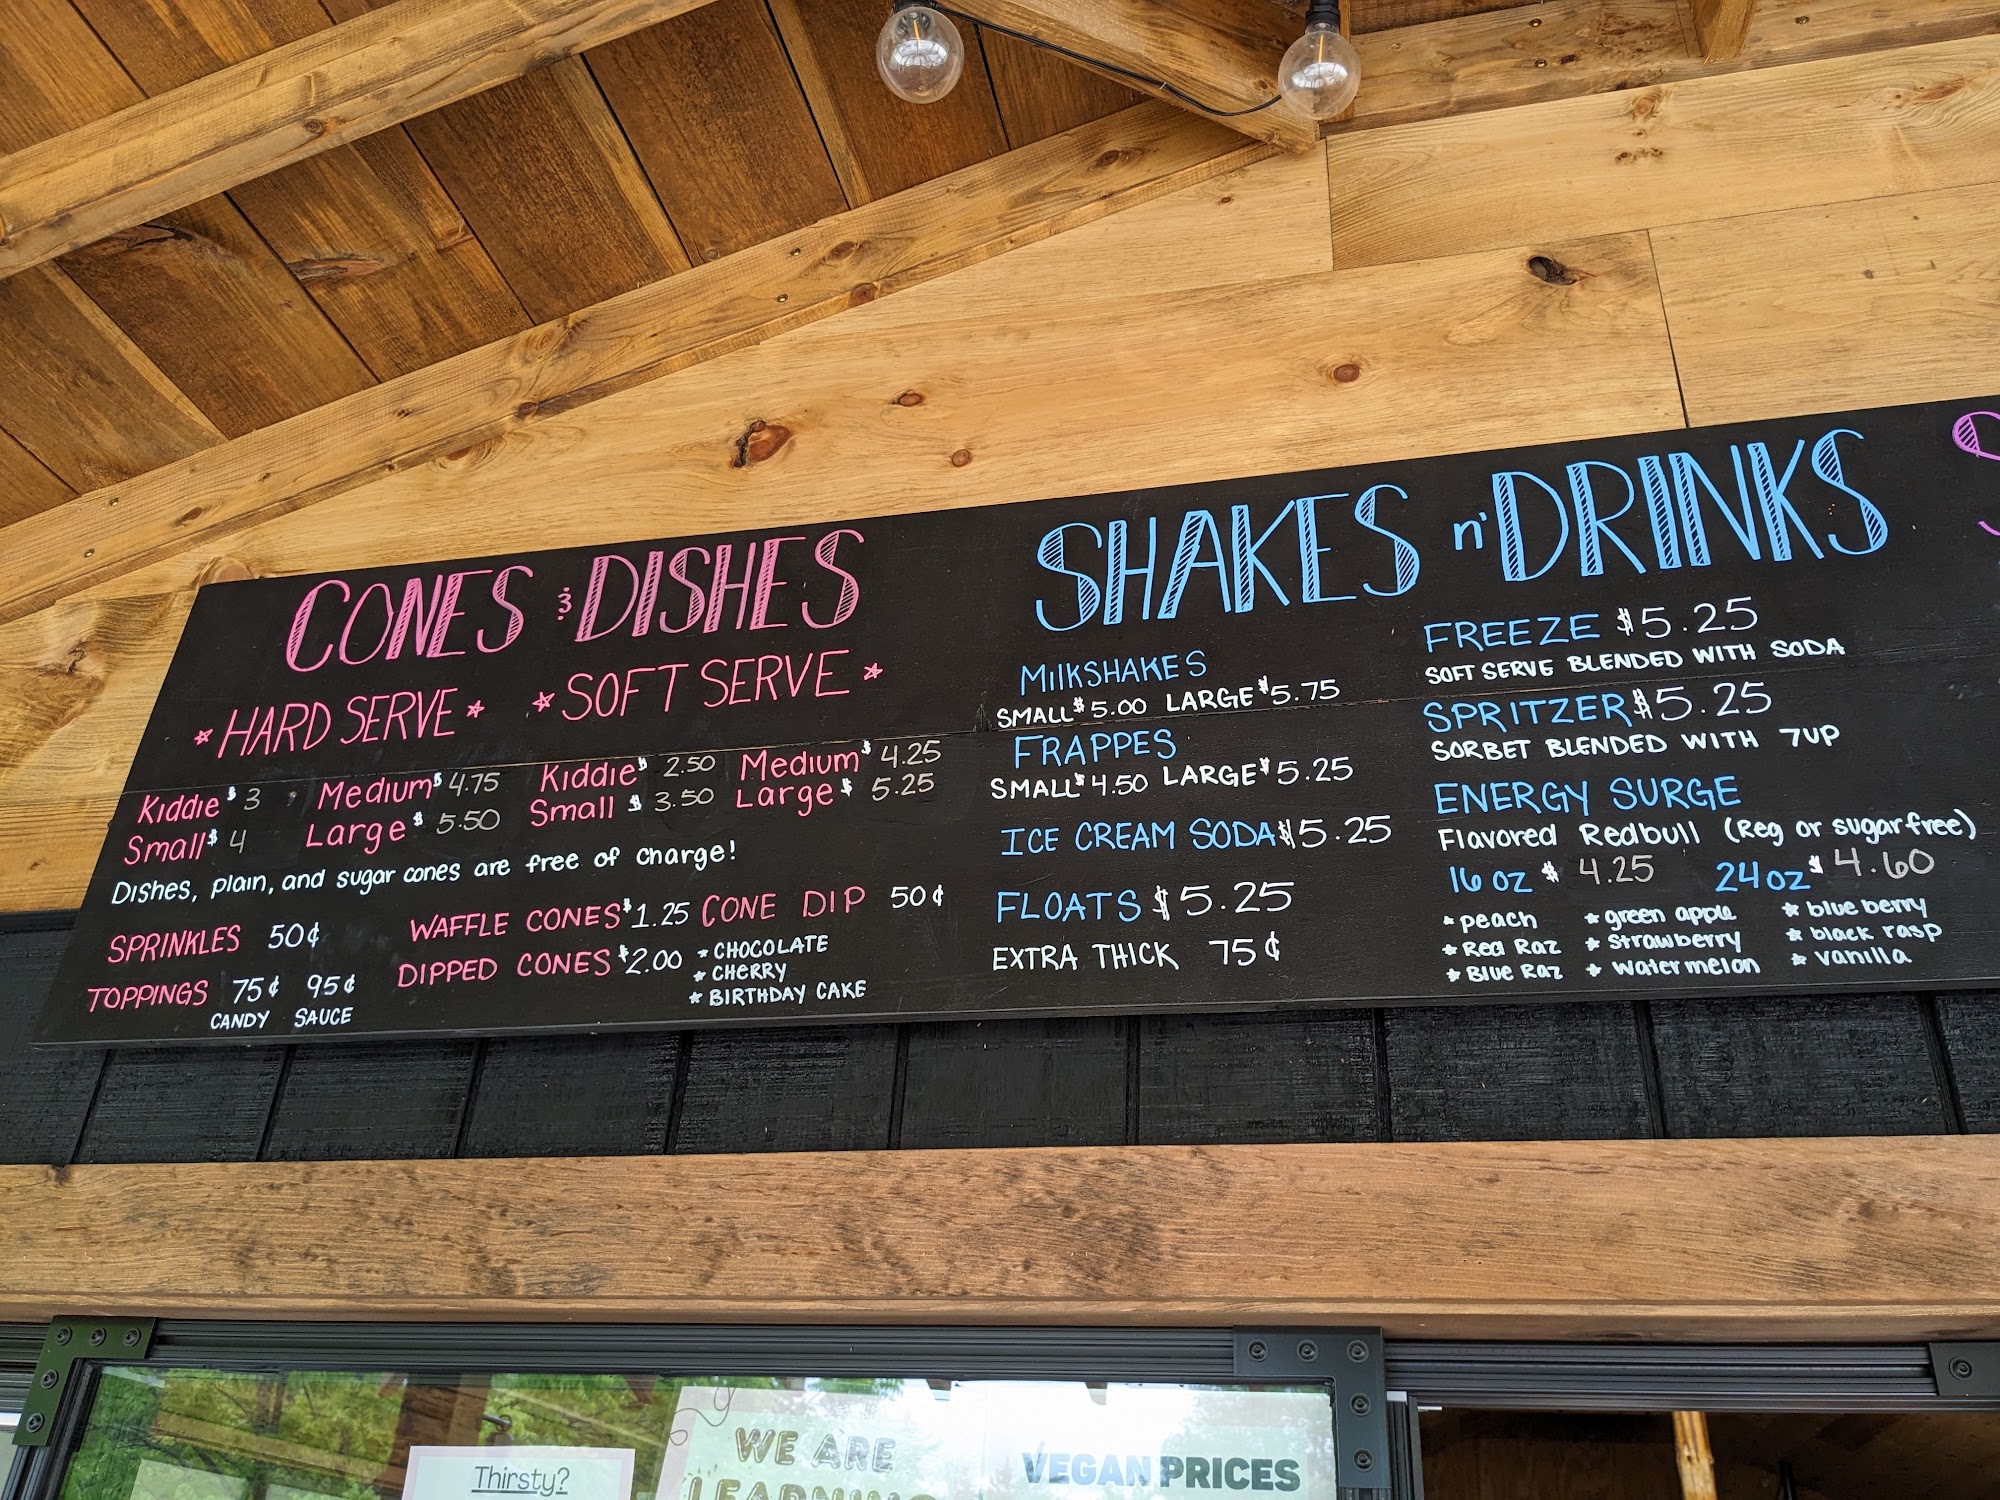 CONES & DISHES
*HARD SERVE* *SOFT SERVE*
Kiddie $3 Medium $4.75 Kiddie $2.50 Medium $4.25
Small $4 Large $5.50 Small $3.50 Large $5.25
Dishes, plain, and sugar cones are free of charge!
SPRINKLES 50¢
TOPPINGS 75¢ 95¢
CANDY SAUCE
WAFFLE CONES $1.25 CONE DIP 50¢
DIPPED CONES $2.00 * CHOCOLATE
* CHERRY
* BIRTHDAY CAKE
SHAKES n' DRINKS
MILKSHAKES
SMALL $5.00 LARGE $5.75
FRAPPES
SMALL $4.50 LARGE $5.25
ICE CREAM SODA $5.25
FLOATS $5.25
EXTRA THICK 75¢
FREEZE $5.25
SOFT SERVE BLENDED WITH SODA
SPRITZER $5.25
SORBET BLENDED WITH 7UP
ENERGY SURGE
Flavored Redbull (Reg or sugarfree)
16 oz $4.25 24 oz $4.60
* peach * green apple * blueberry
* Red Raz * strawberry * black rasp
* Blue Raz * watermelon * vanilla
Thirsty?
WE ARE
LEARNING
VEGAN PRICES